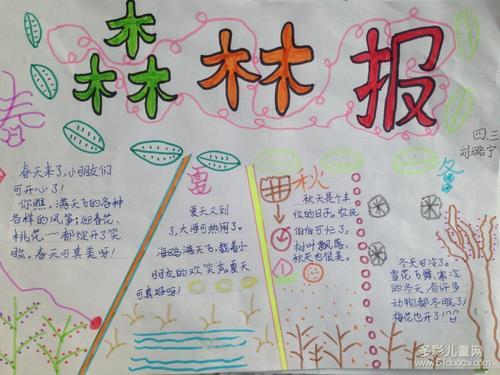 森林报
四三
刘璐宁
春
春天来了,小朋友们
可开心了!
你瞧,满天飞的各种
各样的风筝;迎春花、
桃花……都绽开了笑
脸,春天可真美呀!
夏
夏天又到
了,大海可热闹了。
海鸥满天飞,载着小
朋友的欢笑声,夏天
可真好啊!
秋
秋天是个丰
收的日子。农民
伯伯可忙了,
树叶飘落,
秋天也很美。
冬
冬天可冷了。
雪花飞舞,寒冷
的冬天,有许多
动物都冬眠了!
梅花也开了!
多彩儿童网
www.61duocai.com